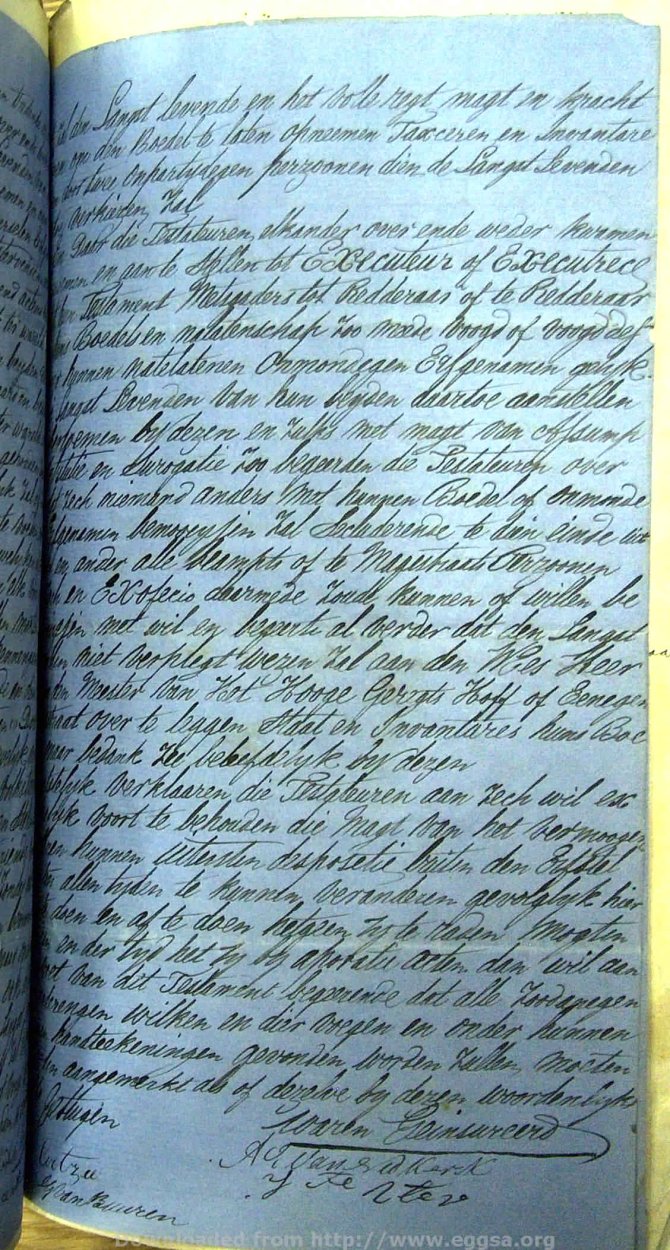 den Langst levende en het volle regt magt en kracht
om den Boedel te laten opneemen Taxceren en Invantare
door twee Onpartydegen perzoonen dien de Langst Levenden
verkiezen Zal
Daar die Testateuren elkander over ende weder kunnen
en aan te Stellen tot Execcuteur of Execcutrece
Testament Metgaders tot Redderaar of te Redderaar
Boedel en nalatenschap zoo mede Voogd of voogdes
hunnen natelatenen Onmondegen Erfgenamen gelyk
Langst Levenden van hun beyden daartoe aenstellen
by dezen en zulks met magt van assump
en Surogatie zoo begeerden die Testateuren over
zech niemand anders met hunnen Boedel of onmonde
bemoeyjen Zal Secluderende te dien einde uit
en ander alle Ampts of te Magestraats Perzoonen
en Exofecio daermede Zoude kunnen of willen be
met wil en begeerte al verder dat den Langst
niet verplegt wezen Zal aan den Wles Heer
Meester van Het Hooge Geregts Hoff of Eenegen
over te leggen Staat en Invantares huns Boe
maar bedank Zee beleefdelyk by dezen
verklaaren die Testateuren aan zech wil ex
voort te behouden die Magt van het vermoogen
hunnen Uitersten desposetie buiten den Erfstel
allen tyden te kunnen veranderen gevolglyk hier
doen en af te doen hetgeen zy te raden mogten
en der tyd het zy by aparate acten dan wil aan
van dit Testament begeerende dat alle Zoodanegen
wilken en dier voegen en onder hunnen
handteekeningen gevonden worden zullen moeten
aangemerkt als of dezelve by dezen woordenlyk
Getuigen waren Geinsureerd
A J van
van Buuren
Downloaded from http://www.eggsa.org